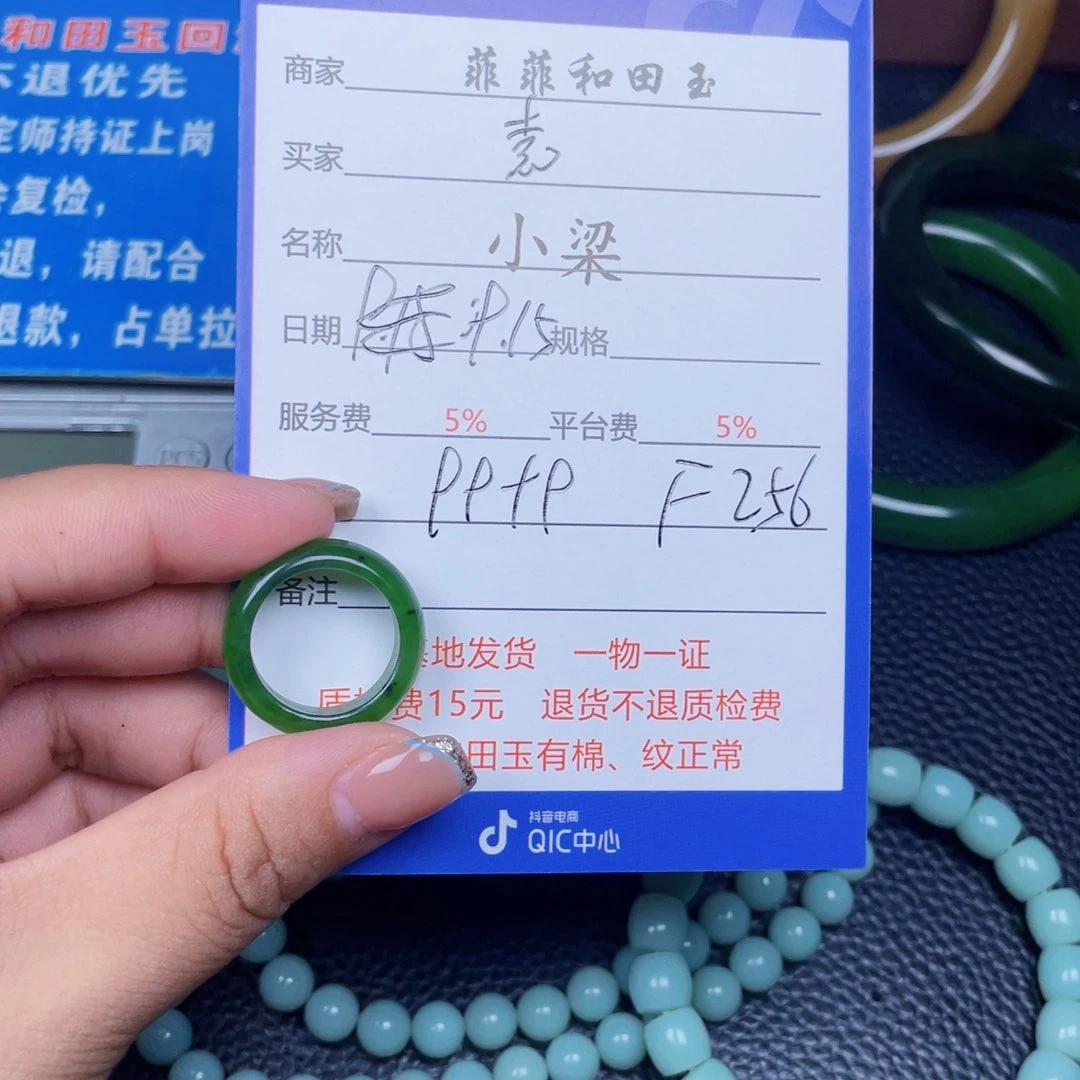 和田玉回
不退优先
定师持证上岗
复检,
退，请配合
退款，占单拉
商家 菲菲和田玉
买家 袁
名称 小梁
日期 9.15 规格
服务费 5% 平台费 5%
PP+P F256
备注
基地发货 一物一证
质检费15元 退货不退质检费
田玉有棉、纹正常
抖音电商
QIC中心
PCS